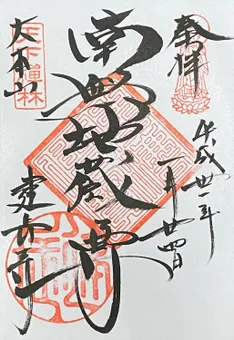 奉拝
平成卅一年
一月廿四日
南無地蔵尊
大本山
天下禅林
建仁寺